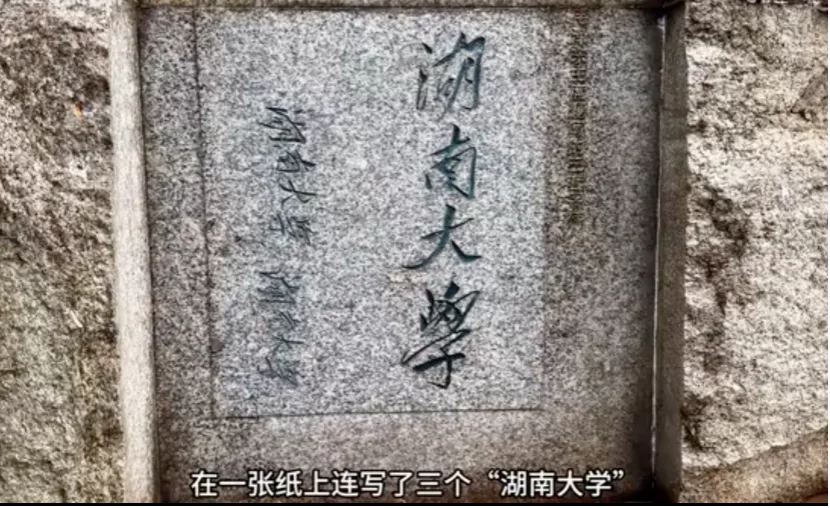 湖南大學
湖南大學
湖南大學
在一张纸上连写了三个“湖南大学”